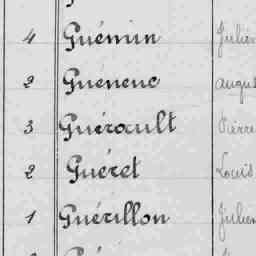 4 Guémin Julien
2 Guéneuc
3 Guérault Pierre
2 Guéret Louis
1 Guérillon Julien